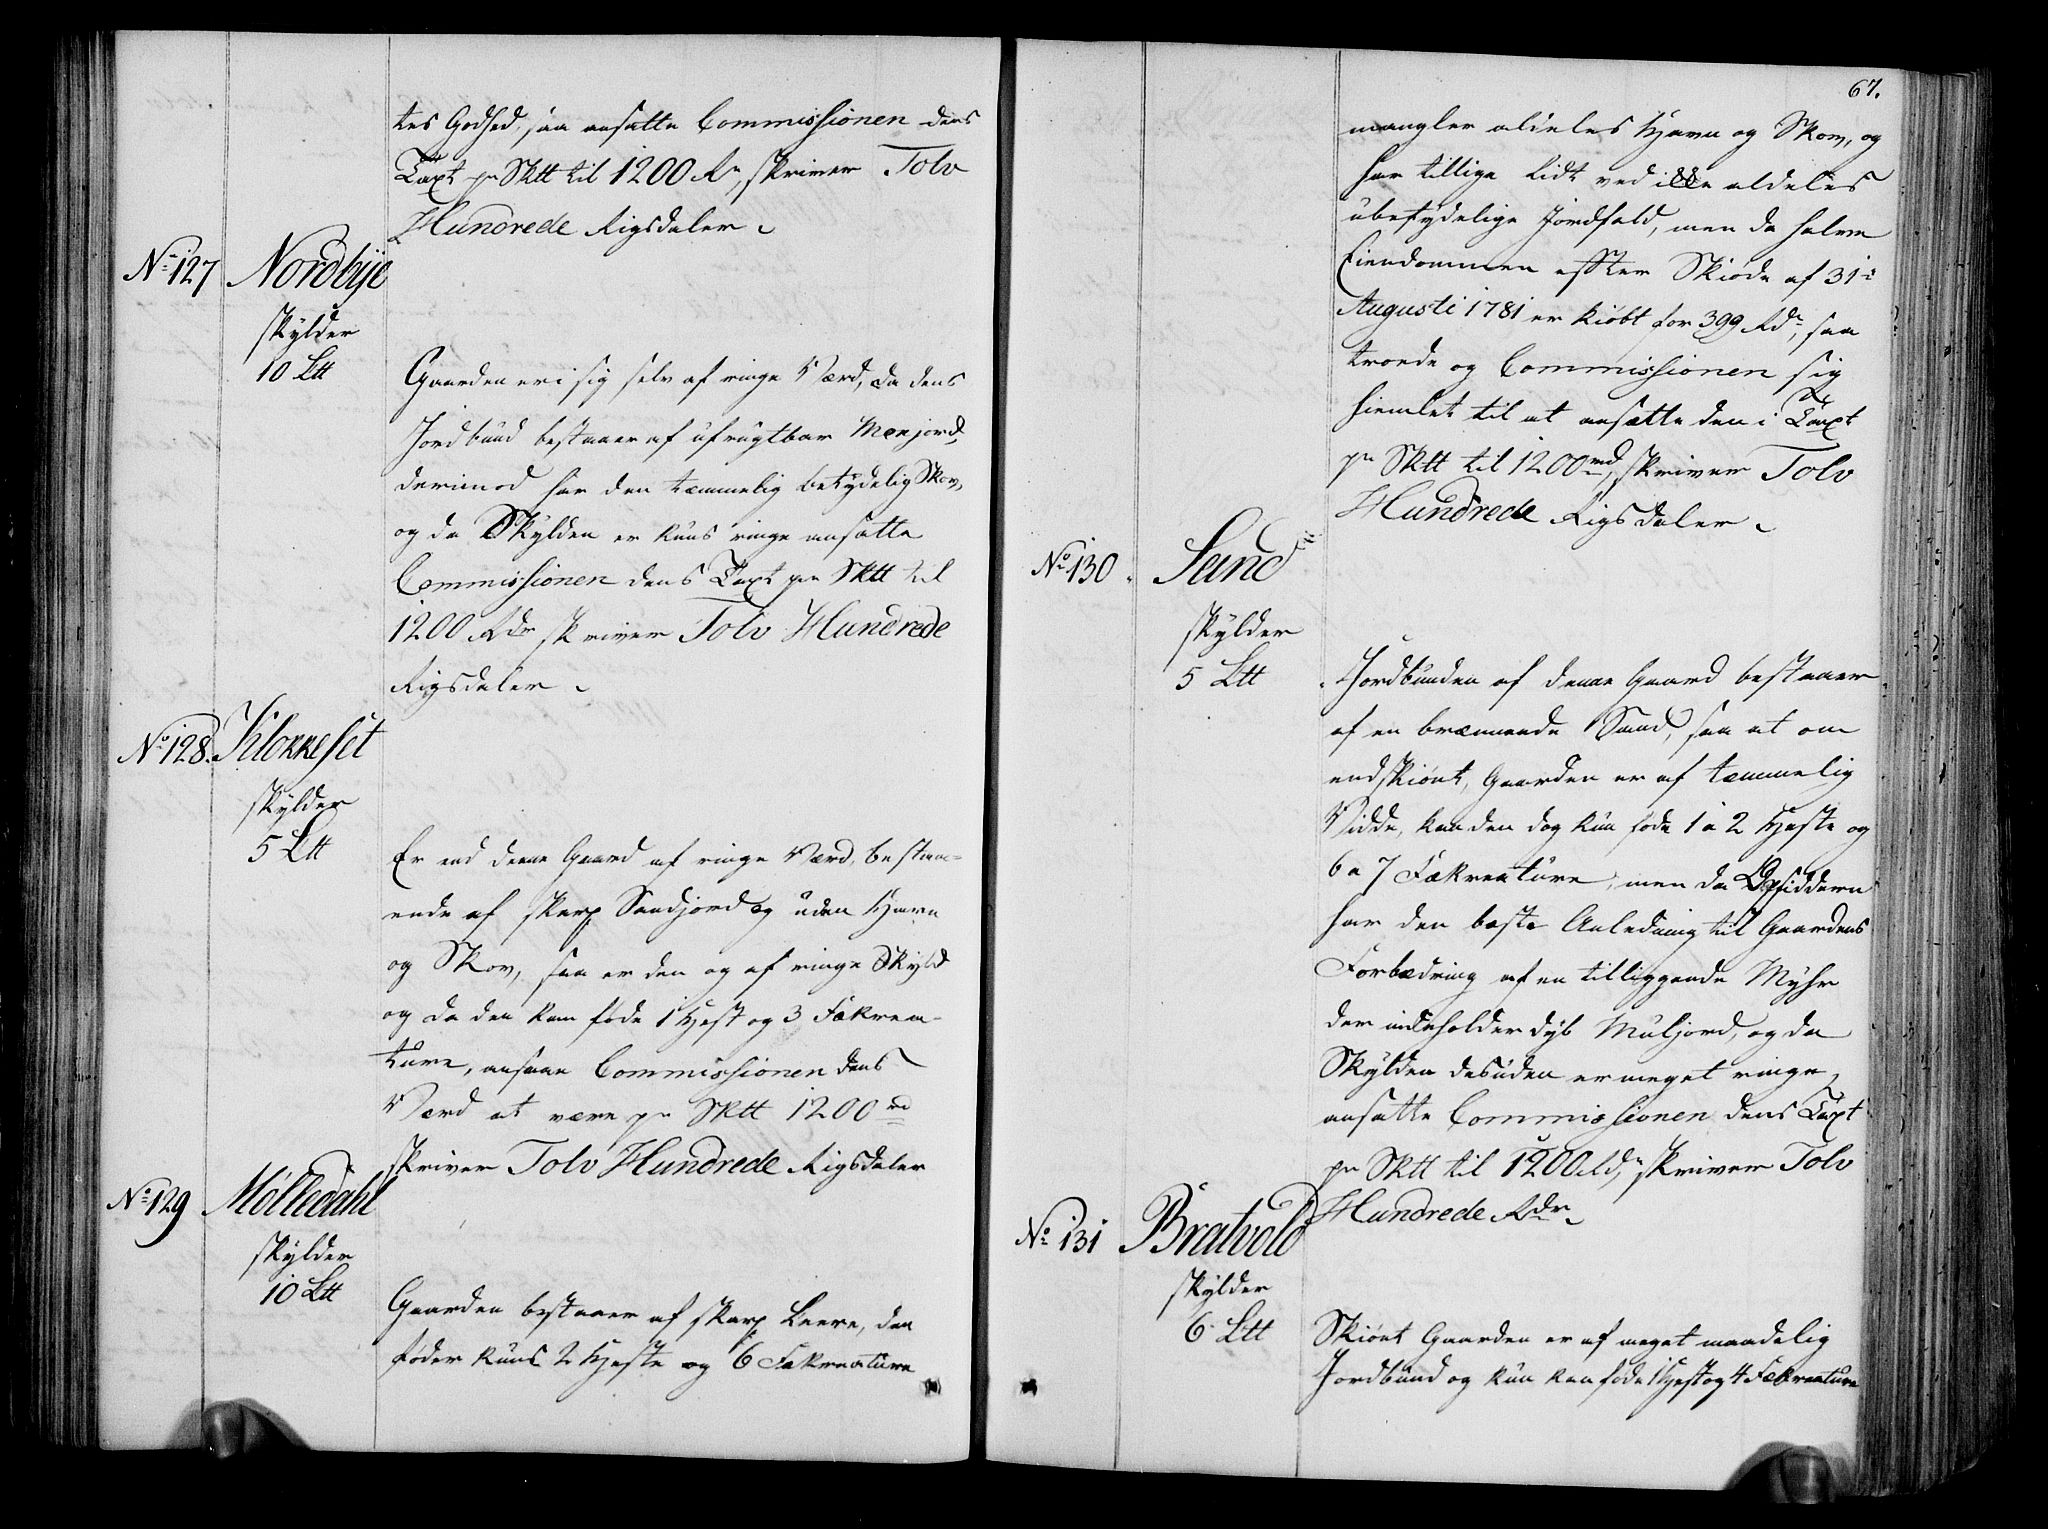 tes Godhed, saa ansatte Commissionen dens
Taxt pr Sktt til 1200 Rr, skriver Tolv
Hundrede Rigsdaler
No 127 Nordbye
skylder
10 Ltt
Gaarden er i sig selv af ringe Værd, da dens
Jordbund bestaaer af ufrugtbar Meejord,
derimod har den temmelig betydelig Skov,
og da Skylden er kuns ringe ansatte
Commissionen dens Taxt pr Sktt til
1200 Rdr skriver Tolv Hundrede
Rigsdaler
No 128. Klokkeset
skylder
5 Ltt
Er end denne Gaard af ringe Værd, bestaa-
ende af skarp Sandjord og uden Havn
og Skov, saa er den og af ringe Skyld
og da den kan føde 1 Hest og 3 Fækrea-
ture, ansaae Commissionen dens
Værd at være pr Sktt 1200 rd
skriver Tolv Hundrede Rigsdaler
No 129 Mølledahl
skylder
10 Ltt
Gaarden bestaaer af skarp Leere, den
føder kuns 2 Heste og 6 Fækreature
67.
mangler aldeles Havn og Skov, og
har tillige lidt ved ikke aldeles
ubetydelige Jordfald, men da halve
Eiendommen efter Skiøde af 31te
Augusti 1781 er kiøbt for 399 Rdr, saa
troede og Commissionen sig
hiemlet til at ansætte den i Taxt
pr Sktt til 1200 rd, skriver Tolv
Hundrede Rigsdaler
No 130. Sand
skylder
5 Ltt
Jordbunden af denne Gaard bestaaer
af en brænnende Sand, saa at om
endskiønt Gaarden er af temmelig
Vidde, kan den dog kun føde 1 a 2 Heste og
6 a 7 Fækreature, men da Opsidderen
har den beste Anledning til Gaardens
Forbædring af en tilliggende Myhr
der indeholder dyb Muljord, og da
Skylden desuden er meget ringe,
ansatte Commissionen dens Taxt
pr Sktt til 1200 Rd, skriver Tolv
Hundrede Rdr
No 131 Bratvold
skylder
6 Ltt
Skiønt Gaarden er af meget maadelig
Jordbund og kun kan føde 1 Hest og 4 Fækreature